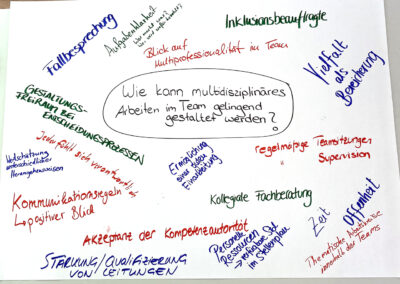 Fallbesprechung
Aufgabenklarheit
Inklusionsbeauftragte
Blick auf
Multiprofessionalität im Team
Vielfalt
als
Bereicherung
Wie kann multidisziplinäres
Arbeiten im Team gelingend
gestaltet werden?
GESTALTUNGS-
FREIRAUM BEI
ENTSCHEIDUNGSPROZESSEN
Jeder fühlt sich verantwortlich
Wertschätzung
unterschiedlicher
Herangehensweisen
Ermöglichung
einer guten
Einarbeitung
regelmäßige Teamsitzungen
" Supervision
Kommunikationsregeln
↳ positiver Blick
Kollegiale Fachberatung
Akzeptanz der Kompetenzautorität
Zeit
Offenheit
Personelle
Ressourcen
im Stellenplan
Thematische Arbeitskreise
innerhalb der Teams
STÄRKUNG/QUALIFIZIERUNG
VON LEITUNGEN